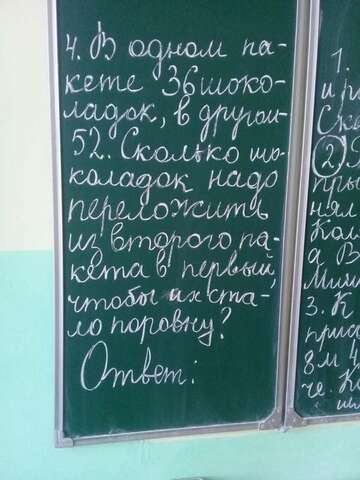 4. В одном па-
кете 36 шоко-
ладок, в другом-
52. Сколько шо-
коладок надо
переложить
из второго па-
кета в первый,
чтобы их ста-
ло поровну?
Ответ:
1.
2)
3. К
8 м 4
че. К